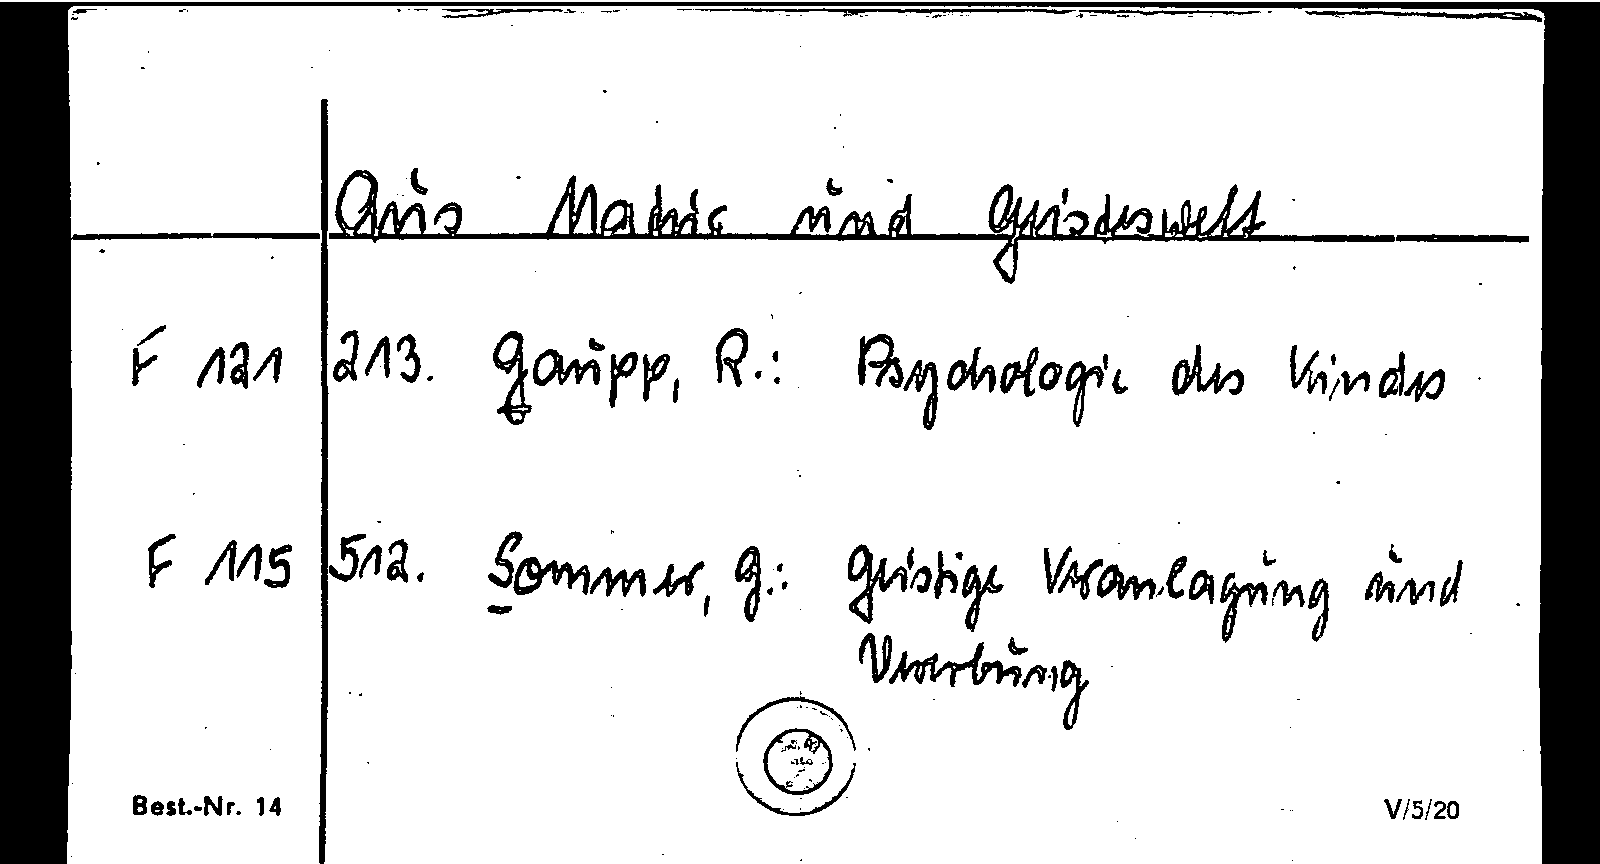 Aus Natur und Geisteswelt
F 121 213. Gaupp, R.: Psychologie des Kindes
F 115 512. Sommer, G.: Geistige Veranlagung und
Vererbung
Best.-Nr. 14 V/5/20